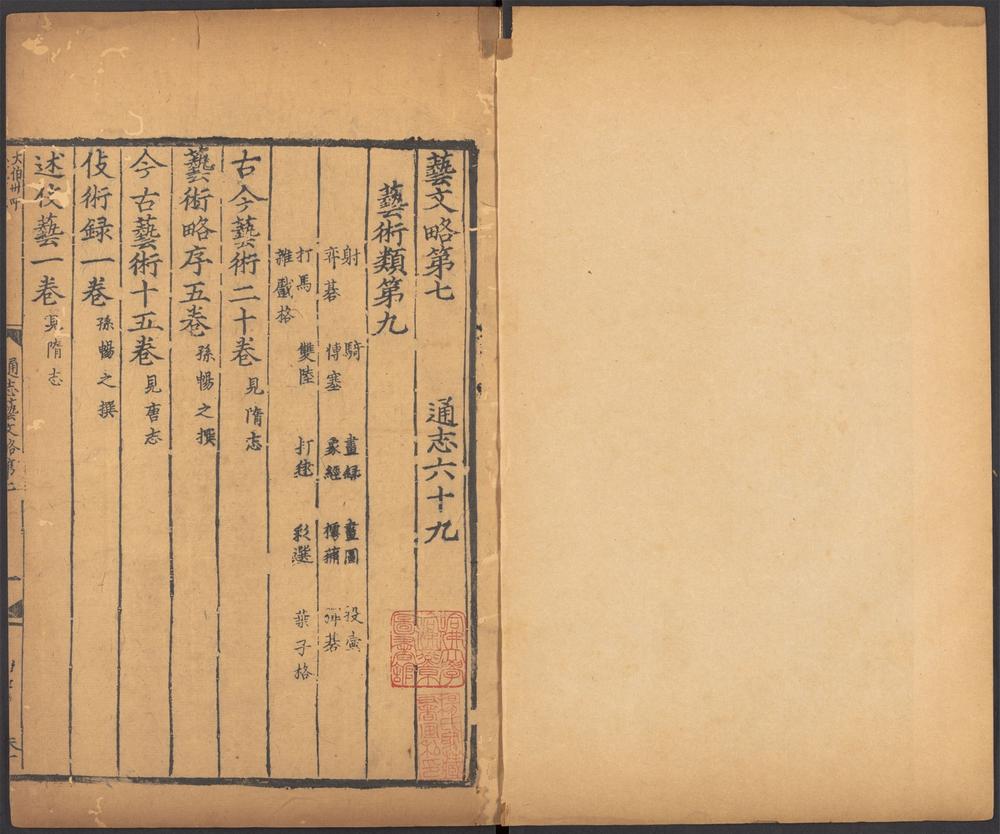 藝文略第七　通志六十九
藝術類第九
射　騎　畫録　畫圖　投壺
弈碁　博塞　象經　摴蒱　彈碁
打馬　雙陸　打毬　彩選　葉子格
雜戲格
古今藝術二十卷 見隋志
藝術略序五卷 孫暢之撰
今古藝術十五卷 見唐志
伎術録一卷 孫暢之撰
述伎藝一卷 見隋志
通志藝文略
哈佛大學哈佛燕京圖書館